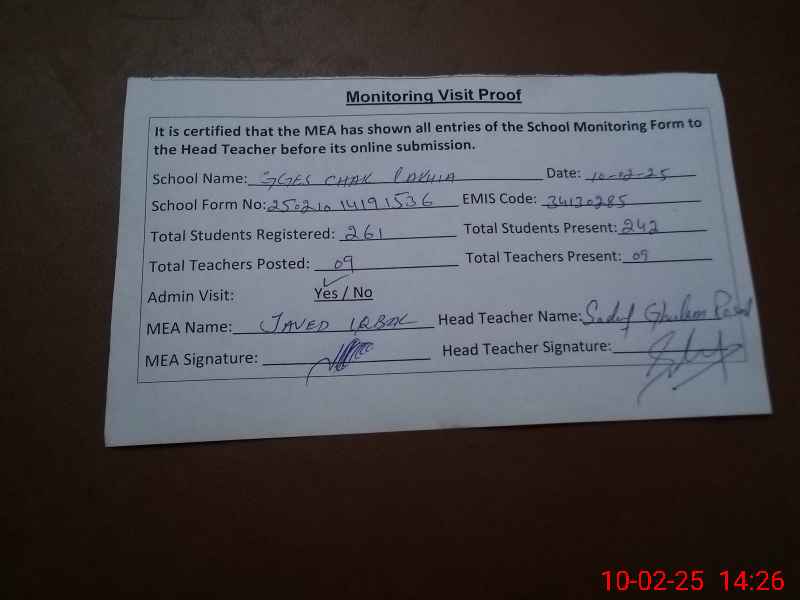 Monitoring Visit Proof
It is certified that the MEA has shown all entries of the School Monitoring Form to
the Head Teacher before its online submission.
School Name: GGES CHAK Date: 10-02-25
School Form No: 250210 14191536 EMIS Code: 34130285
Total Students Registered: 261 Total Students Present: 242
Total Teachers Posted: 09 Total Teachers Present: 09
Admin Visit: Yes / No
MEA Name: JAVED IQBAL Head Teacher Name: Sadaf Ghulam Rasul
MEA Signature: Head Teacher Signature:
10-02-25 14:26